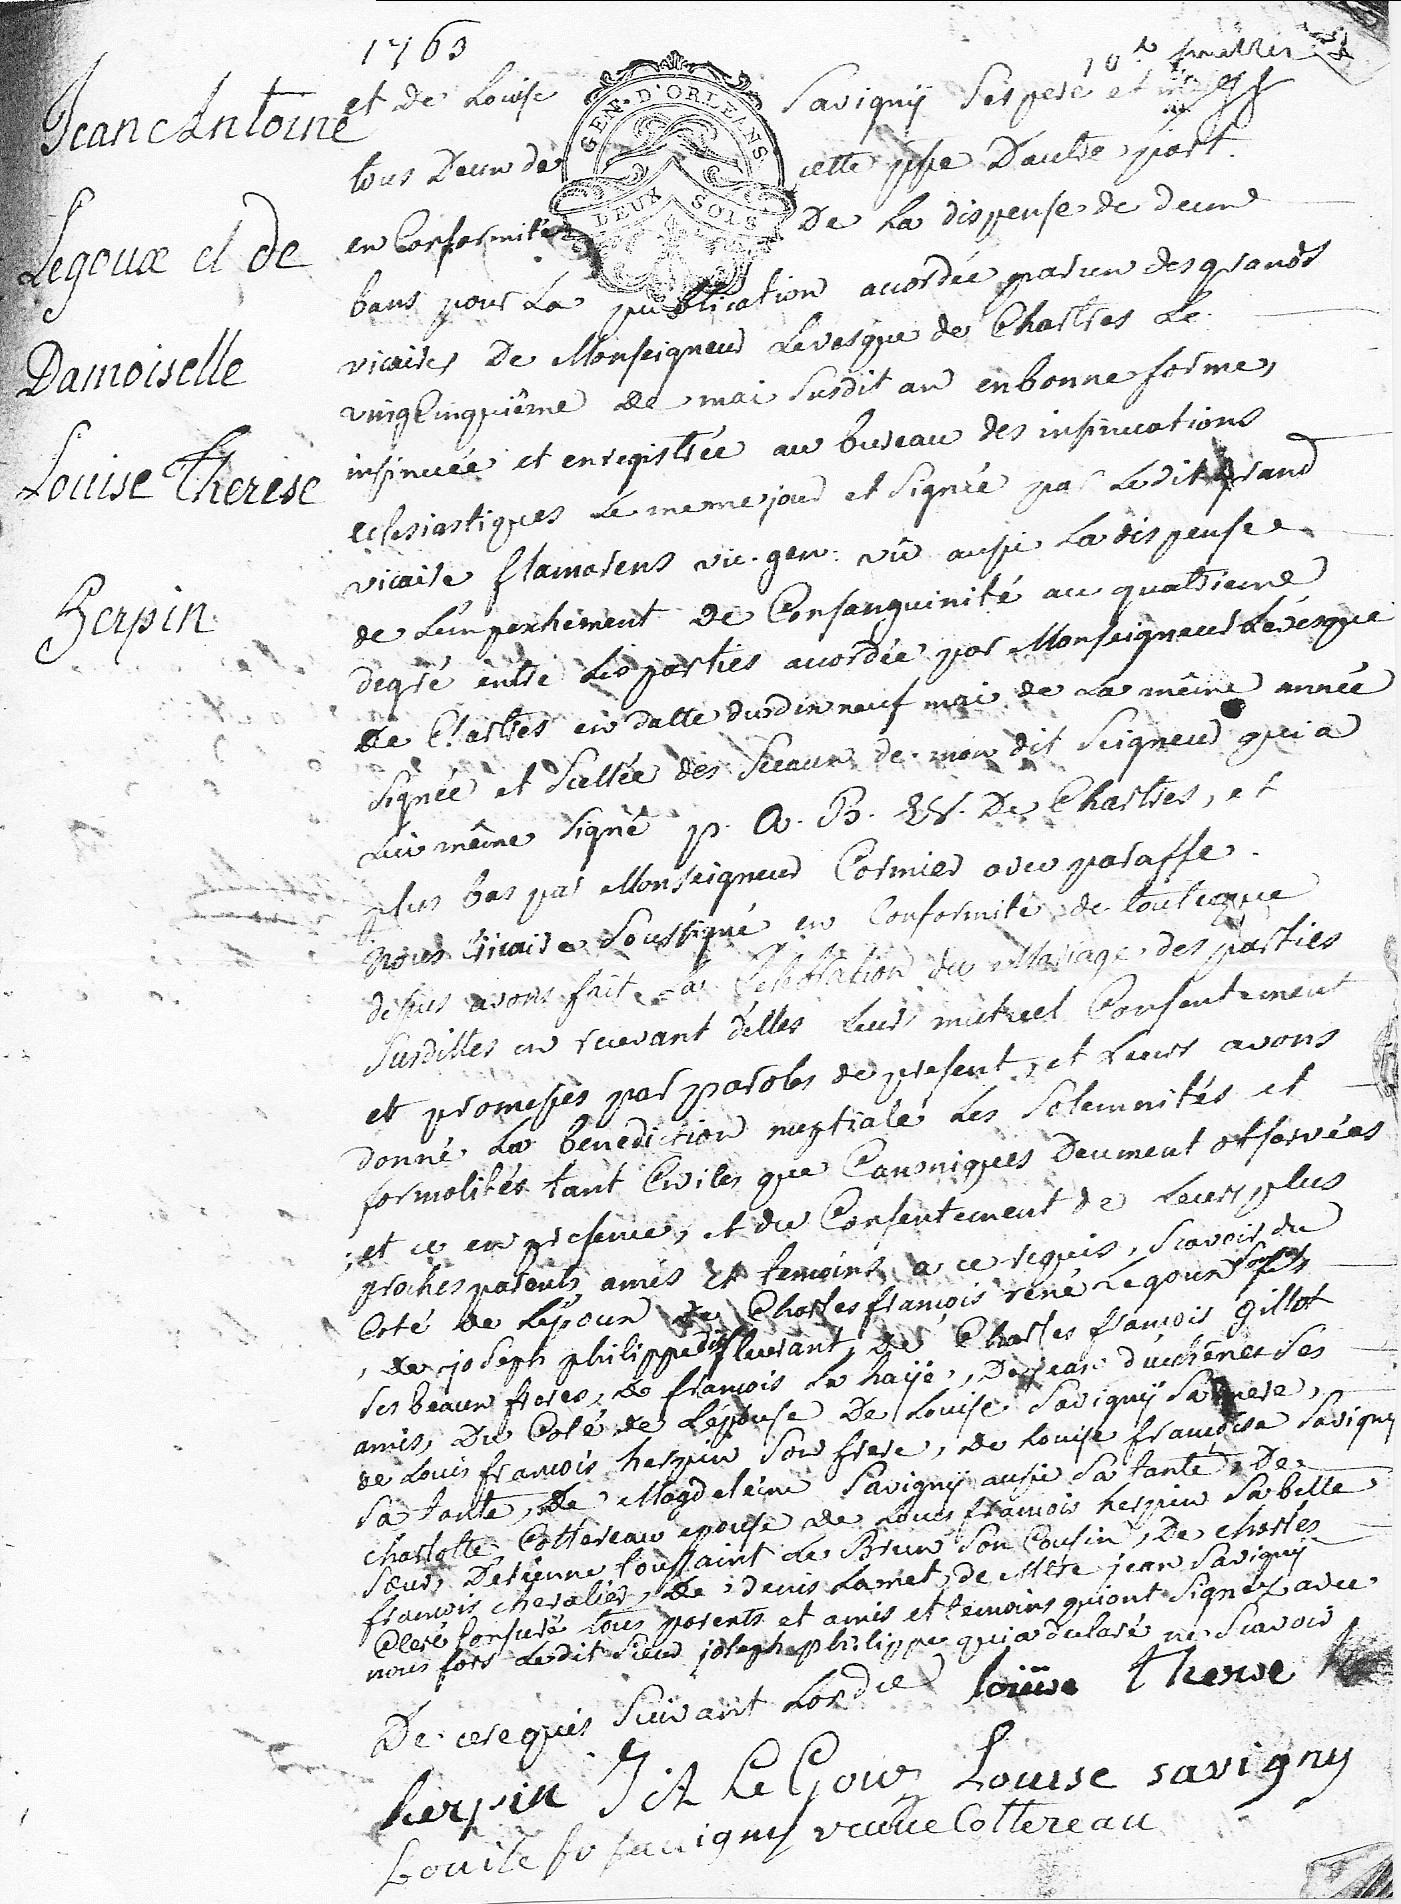 1763
Jean Antoine
Legoux et de
Damoiselle
Louise Therese
herpin
GEN. D'ORLEANS.
DEUX SOLS
et de Louise Savignÿ Ses pere et
tous Deun de cette ppe Dautre part.
en Conformité De La dispense de deux
bans pour La publication accordée par un des grands
vicaires De Monseigneur Levesque de Chartres Le
vingt Cinquiême de mai Susdit an en bonne forme,
insinuée et enregistrée au bureau des insinuations
eclesiastiques Le meme jour et Signée par Ledit grand
vicaire flamarens vic. gen: vû aussi La dispense
de L'empechement de Consanguinité au quatrieme
degré entre Les parties accordée par Monseigneur Levesque
De Chartres en datte du dix neuf mai de La même année
Signée et Scellée des Sceaux de mon dit Seigneur qui a
Lui même Signé p. A. B. Ev. De Chartres, et
plus bas par Monseigneur Cormier avec paraffe.
Nous vicaire Soussigné en Conformité de tout ce que
dessus avons fait La Celebration du Mariage des parties
Susdittes en recevant d'elles Leur mutuel Consentement
et promesses par paroles de present, et Leurs avons
donné La benediction nuptiale Les Solemnités et
formalités tant Civiles que Canoniques Deument observées
, et ce en presence, et du Consentement de Leurs plus
proches parents amis et temoins a ce requis, Scavoir du
Coté de L'Epoux de Charles françois rené Legoux
, de joseph philippe dit fleurant, de Charles françois gillot
Ses beaux freres, de françois La haÿe, De jean duchênes Ses
amis, Du Coté de L'épouse De Louise Savignÿ Sa mere,
de Louis françois herpin Son frere, de Louise françoise Savigny
Sa tante, De Magdeleine Savignÿ aussi Sa tante, De
charlotte Cottereau epouse de Louis françois herpin Sa belle
Sœur, D'etienne toussaint Le Brun Son Cousin, De charles
francois chevalier, De denis Lamet, de Mtre jean Savignÿ
Clerc tonsuré tous parents et amis et temoins qui ont Signez avec
nous fors Ledit Sieur joseph philippe qui a declaré ne Scavoir
De ce requis Suivant Lordce Louïse therese
herpin J A Le Goux Louise savigny
Louise fr Sauigny veuue Cottereau